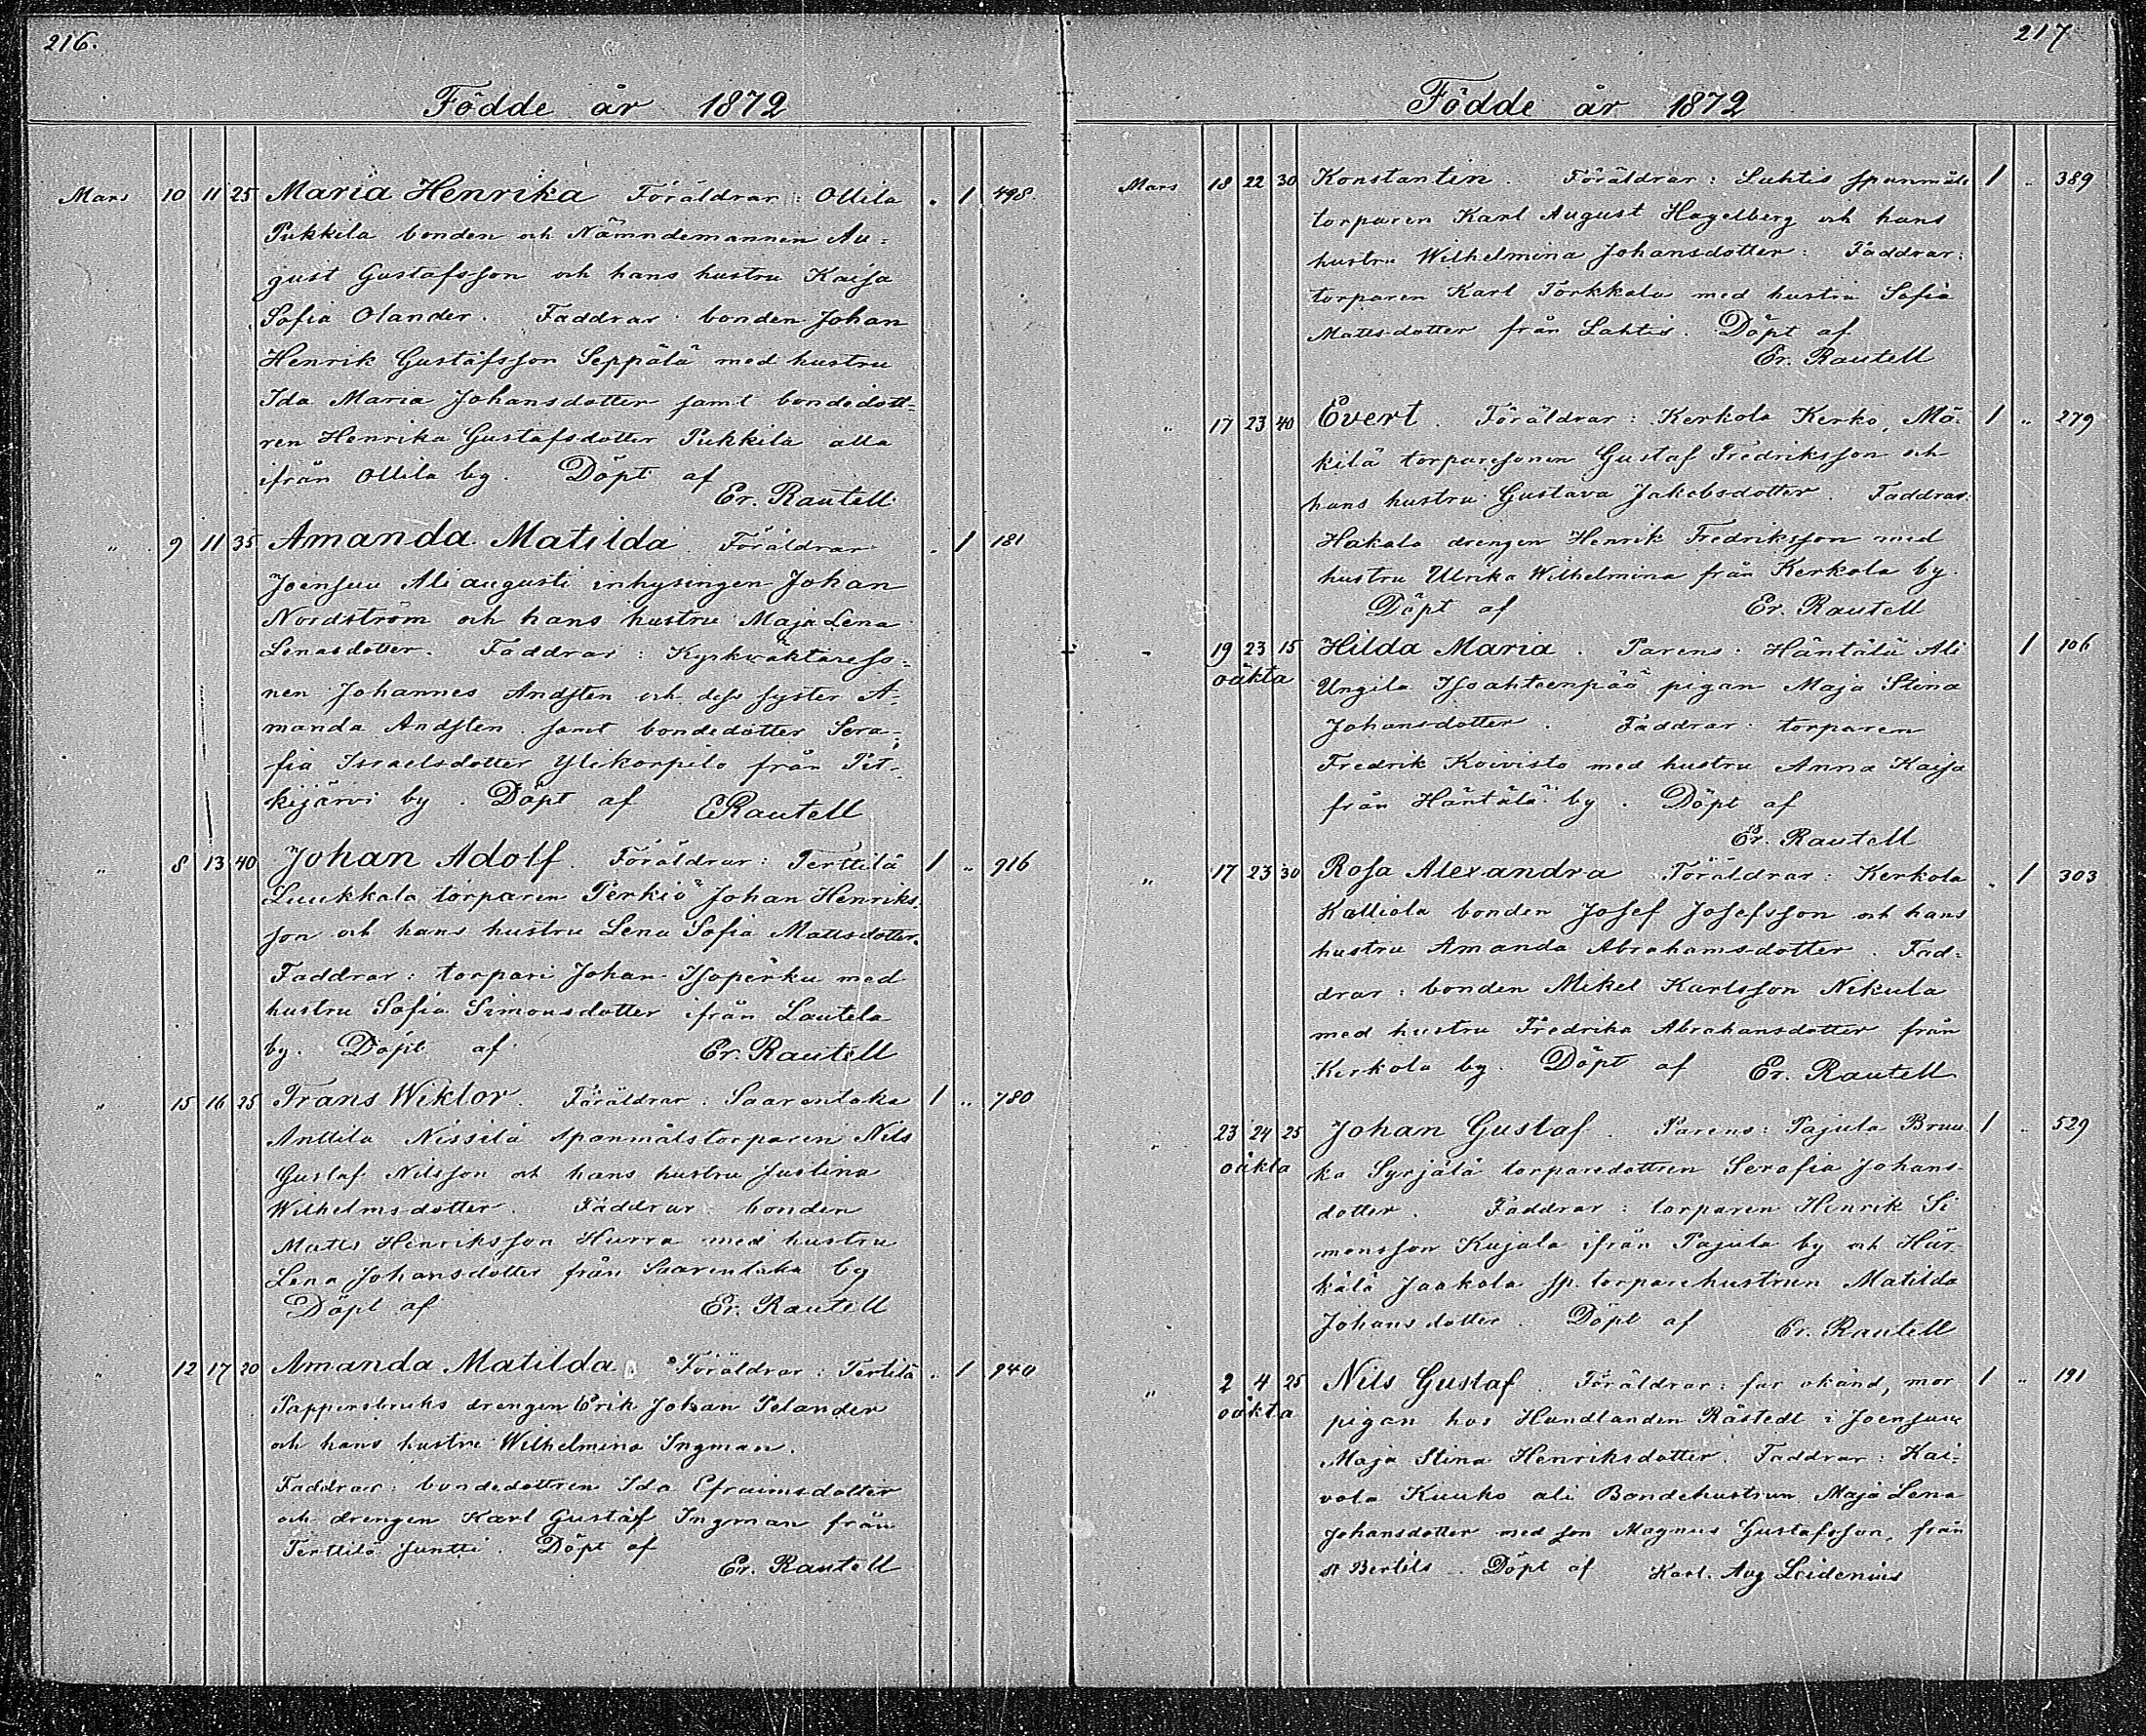 216.
Födde år 1872
Mars 10 11 25 Maria Henrika Föräldrar: Ollila . 1 498.
Pukkila bonden och Nämndemannen Au-
gust Gustafsson och hans hustru Kaisa
Sofia Olander. Faddrar: bonden Johan
Henrik Gustafsson Seppälä med hustru
Ida Maria Johansdotter samt bondedott-
ren Henrika Gustafsdotter Pukkila alla
ifrån Ollila by. Döpt af
Er. Rautell
" 9 11 35 Amanda Matilda. Föräldrar . 1 181
Joensuu Ali augusti inhysingen Johan
Nordström och hans hustru Maja Lena
Lenasdotter. Faddrar: Kyrkväktareso-
nen Johannes Andsten och dess syster A-
manda Andsten samt bondedotter Sera-
fia Israelsdotter Ylikorpilo från Pit-
kijärvi by. Döpt af ERautell
" 8 13 40 Johan Adolf. Föräldrar: Terttilä 1 " 916
Luukkala torparen Perkiö Johan Henriks-
son och hans hustru Lena Sofia Mattsdotter.
Faddrar: torpari Johan Isoperku med
hustru Sofia Simonsdotter ifrån Lautela
by. Döpt af Er. Rautell
" 15 16 25 Frans Wiktor. Föräldrar: Saarentaka 1 " 780
Anttila Nissilä spanmålstorparen Nils
Gustaf Nilsson och hans hustru Justina
Wilhelmsdotter. Faddrar bonden
Matts Henriksson Hurra med hustru
Lena Johansdotter från Saarentaka by
Döpt af Er. Rautell
" 12 17 20 Amanda Matilda Föräldrar: Tertilä . 1 940
Pappersbruks drengen Erik Johan Pelander
och hans hustru Wilhelmina Ingman.
Faddrar: bondedottren Ida Efraimsdotter
och drengen Karl Gustaf Ingman från
Terttilä Juntti. Döpt af
Er. Rautell
217
Födde år 1872
Mars 18 22 30 Konstantin. Föräldrar: Lahtis spanmåls 1 " 389
torparen Karl August Hagelberg och hans
hustru Wilhelmina Johansdotter: Faddrar:
torparen Karl Torkkala med hustru Sofia
Mattsdotter från Lahtis. Döpt af
Er. Rautell
" 17 23 40 Evert. Föräldrar: Kerkola Kerko, Mä- 1 " 279
kilä torparesonen Gustaf Fredriksson och
hans hustru Gustava Jakobsdotter. Faddrar:
Hakala drengen Henrik Fredriksson med
hustru Ulrika Wilhelmina från Kerkola by.
Döpt af Er. Rautell
" 19 23 15 Hilda Maria. Parens: Häntälä Ali 1 106
oäkta Ungila Isoahteenpää pigan Maja Stina
Johansdotter. Faddrar: torparen
Fredrik Koivisto med hustru Anna Kaisa
från Häntälä by. Döpt af
Er. Rautell
" 17 23 30 Rosa Alexandra Föräldrar: Kerkola . 1 303
Kalliola bonden Josef Josefsson och hans
hustru Amanda Abrahamsdotter. Fad-
drar: bonden Mikel Karlsson Nikula
med hustru Fredrika Abrahamsdotter från
Kerkola by. Döpt af Er. Rautell
" 23 24 25 Johan Gustaf. Parens: Pajula Bruu- 1 " 529
oäkta ka Syrjälä torparedottren Serafia Johans-
dotter. Faddrar: torparen Henrik Si
monsson Kujala ifrån Pajula by och Här-
kälä Jaakola sp. torparehustrun Matilda
Johansdotter. Döpt af Er. Rautell
" 2 4 25 Nils Gustaf. Föräldrar: far okänd, mor 1 " 191
oäkta pigan hos Handlanden Råstedt i Joensuu
Maja Stina Henriksdotter. Faddrar: Kai-
vola Kuuko ali Bondehustrun Maja Lena
Johansdotter med son Magnus Gustafsson, från
St Bertils. Döpt af Karl. Aug Leidenius